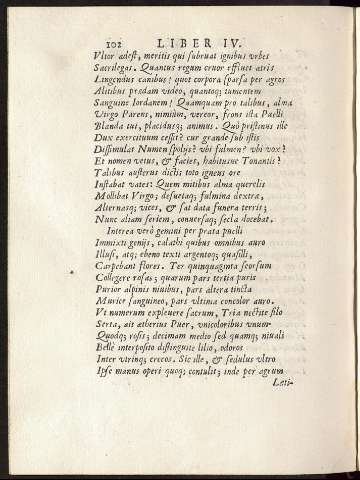 102 LIBER IV.
Vltor adest, meritis qui subruat ignibus vrbes
Sacrilegas. Quantus regum cruor effluet atris
Lingendus canibus! quot corpora sparsa per agros
Alitibus prædam video, quantoq; tumentem
Sanguine Iordanem! Quamquam pro talibus, alma
Virgo Parens, nimiùm, vereor, frons ista Puelli
Blanda tui, placidusq; animus. Quò pristinus ille
Dux exercituum cessit? cur grande sub istis
Dissimulat Numen spolijs? vbi fulmen? vbi vox?
Et nomen vetus, & facies, habitusue Tonantis?
Talibus austerus dictis toto igneus ore
Instabat vates: Quem mitibus alma querelis
Mollibat Virgo; desuetaq; fulmina dextræ,
Alternasq; vices, & sat data funera terris;
Nunc aliam seriem, conuersaq; secla docebat.
Interea verò gemini per prata puelli
Immixti genijs, calathi quibus omnibus auro
Illusi, atq; ebeno texti argentoq; quasilli,
Carpebant flores. Ter quinquaginta seorsum
Collegere rosas; quarum pars tertia puris
Purior alpinis niuibus, pars altera tincta
Murice sanguineo, pars vltima concolor auro.
Vt numerum expleuere sacrum, Tria nectite filo
Serta, ait æthereus Puer, vnicoloribus vnum
Quodq; rosis; decimam medio sed quamq; niuali
Bellè interposito distinguite lilio, odoros
Inter vtrinq; crocos. Sic ille, & sedulus vltro
Ipse manus operi quoq; contulit; inde per agrum
Leti-